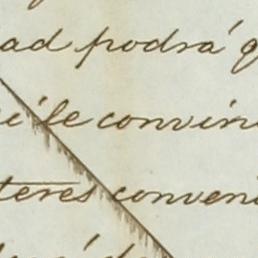 ad podrá q
i se convin
teres conveni